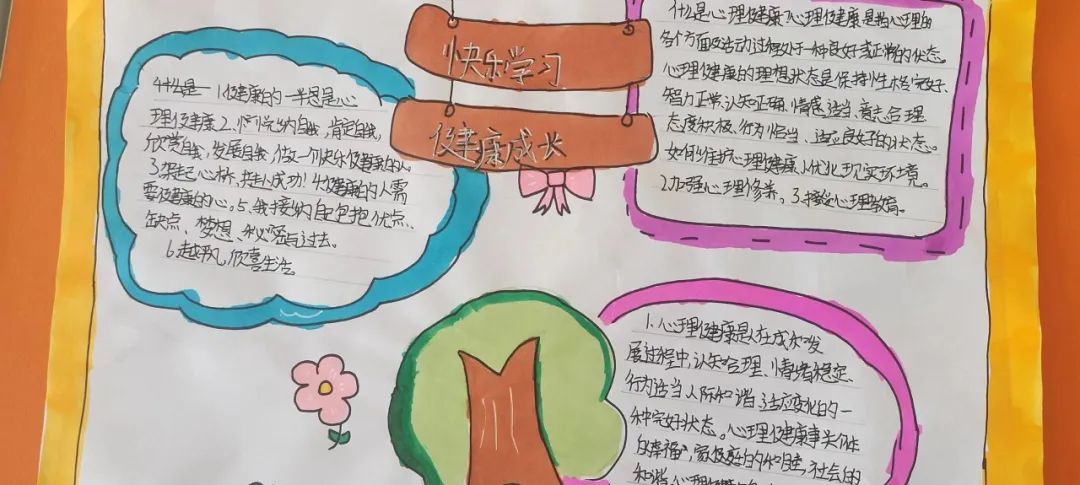 快乐学习
健康成长
什么是 1.健康的一半是心
理健康2、悦纳自我,肯定自我,
欣赏自我,发展自我,做一个快乐健康的人
3.架起心桥,共赴成功!4.健康的人需
要健康的心。5、我接纳自己包括优点、
缺点、梦想、和过去。
6.超越平凡,欣喜生活。
什么是心理健康?心理健康是指心理的
各个方面及活动过程处于一种良好或正常的状态。
心理健康的理想状态是保持性格完好、
智力正常、认知正确、情感适当、意志合理、
态度积极、行为恰当、适应良好的状态。
如何维护心理健康、1.优化现实环境。
2.加强心理修养。3.接受心理教育。
1.心理健康是人在成长发
展过程中,认知合理、情绪稳定、
行为适当、人际和谐、适应变化的一
种完好状态。心理健康事关个体
的幸福,家庭的和睦,社会的
和谐,心理健康